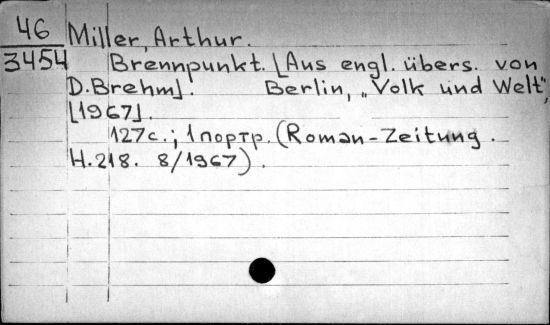 46
3454
Miller, Arthur.
Brennpunkt. [Aus engl. übers. von
D.Brehm]. Berlin, „Volk und Welt",
[1967].
127с.; 1 портр. (Roman-Zeitung.
H.218. 8/1967).